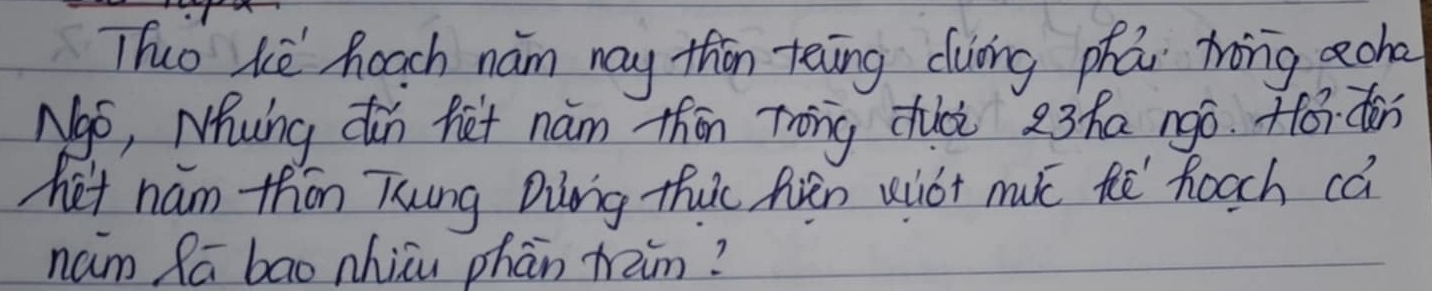 Theo kế hoạch năm nay thôn trung dương phải trồng 20ha
Ngô, Nhưng đến hết năm thôn trồng được 23ha ngô. Hỏi đến
hết năm thôn Trung Dương thực hiện vượt mức kế hoạch cả
năm là bao nhiêu phần trăm?